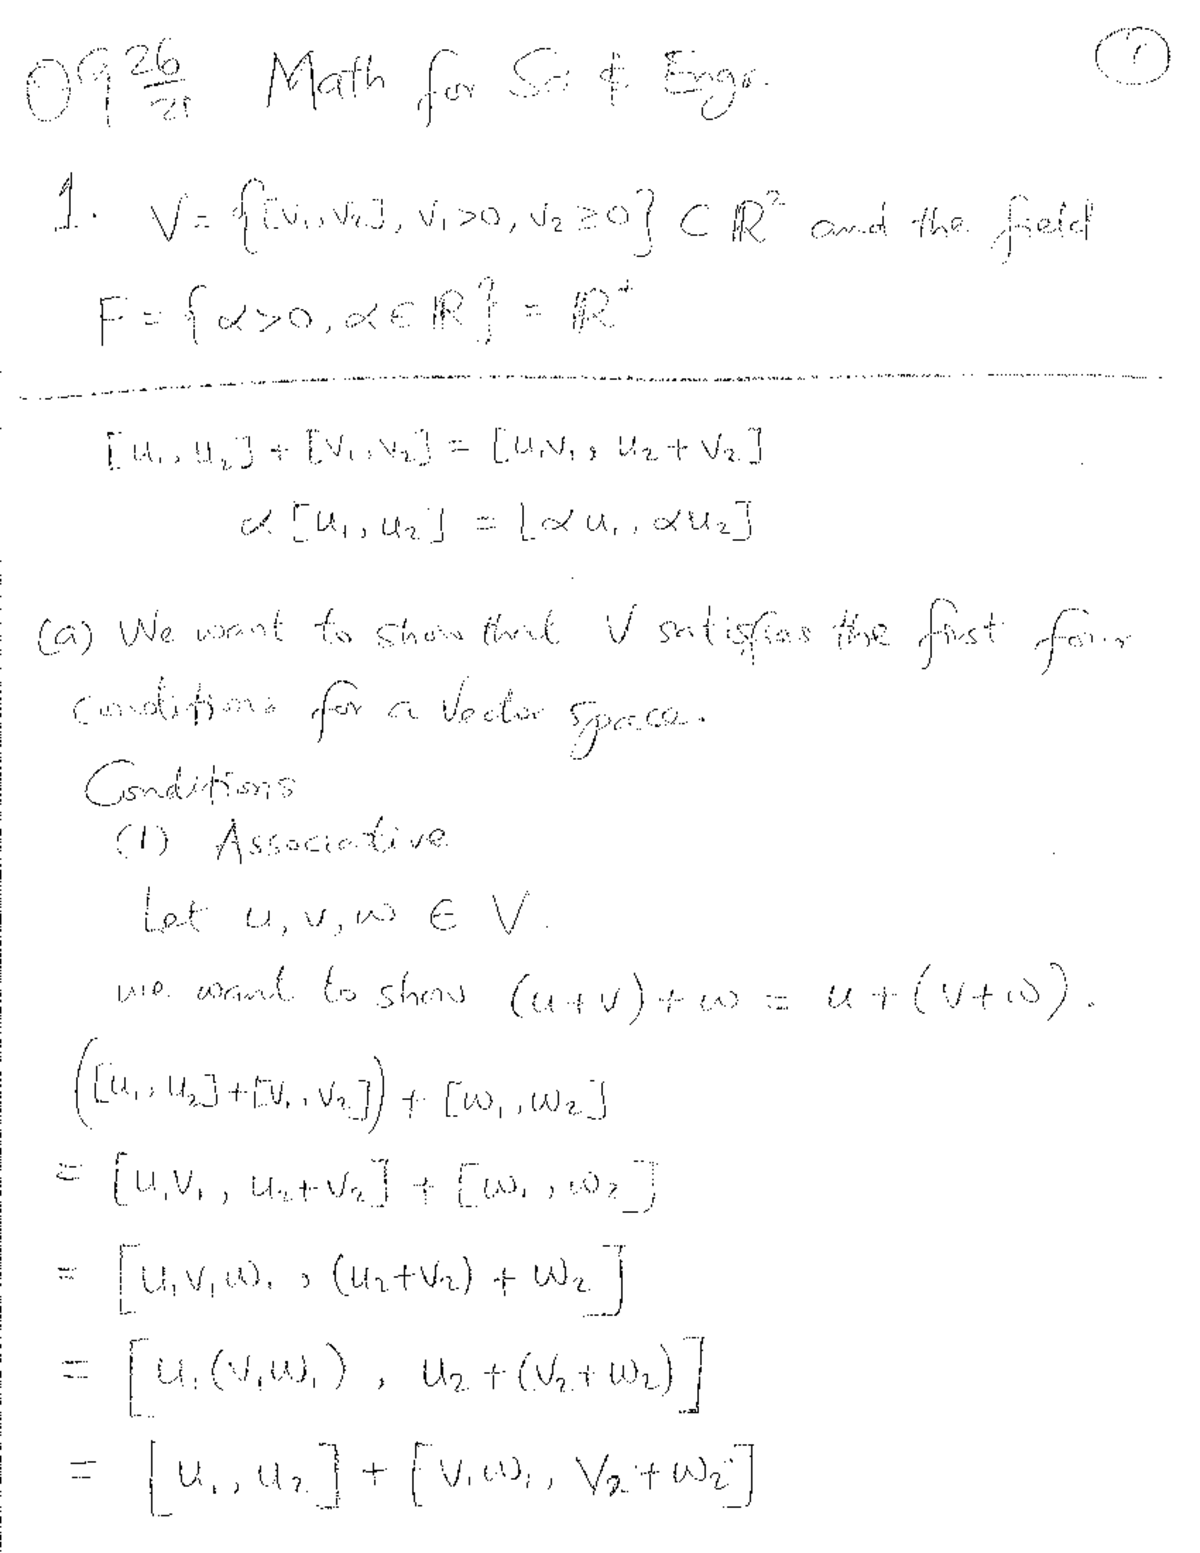 09 26/21 Math for Sci & Engr. 1
1. V = {[v₁, v₂], v₁>0, v₂≥0} ⊂ ℝ² and the field
F = {α>0, α∈ℝ} = ℝ⁺
[u₁, u₂] + [v₁, v₂] = [u₁v₁, u₂+v₂]
α[u₁, u₂] = [αu₁, αu₂]
(a) We want to show that V satisfies the first four
conditions for a vector space.
Conditions
(1) Associative
Let u, v, w ∈ V.
we want to show (u+v)+w = u+(v+w).
([u₁, u₂]+[v₁, v₂]) + [w₁, w₂]
= [u₁v₁, u₂+v₂] + [w₁, w₂]
= [u₁v₁w₁, (u₂+v₂) + w₂]
= [u₁(v₁w₁), u₂+(v₂+w₂)]
= [u₁, u₂] + [v₁w₁, v₂+w₂]